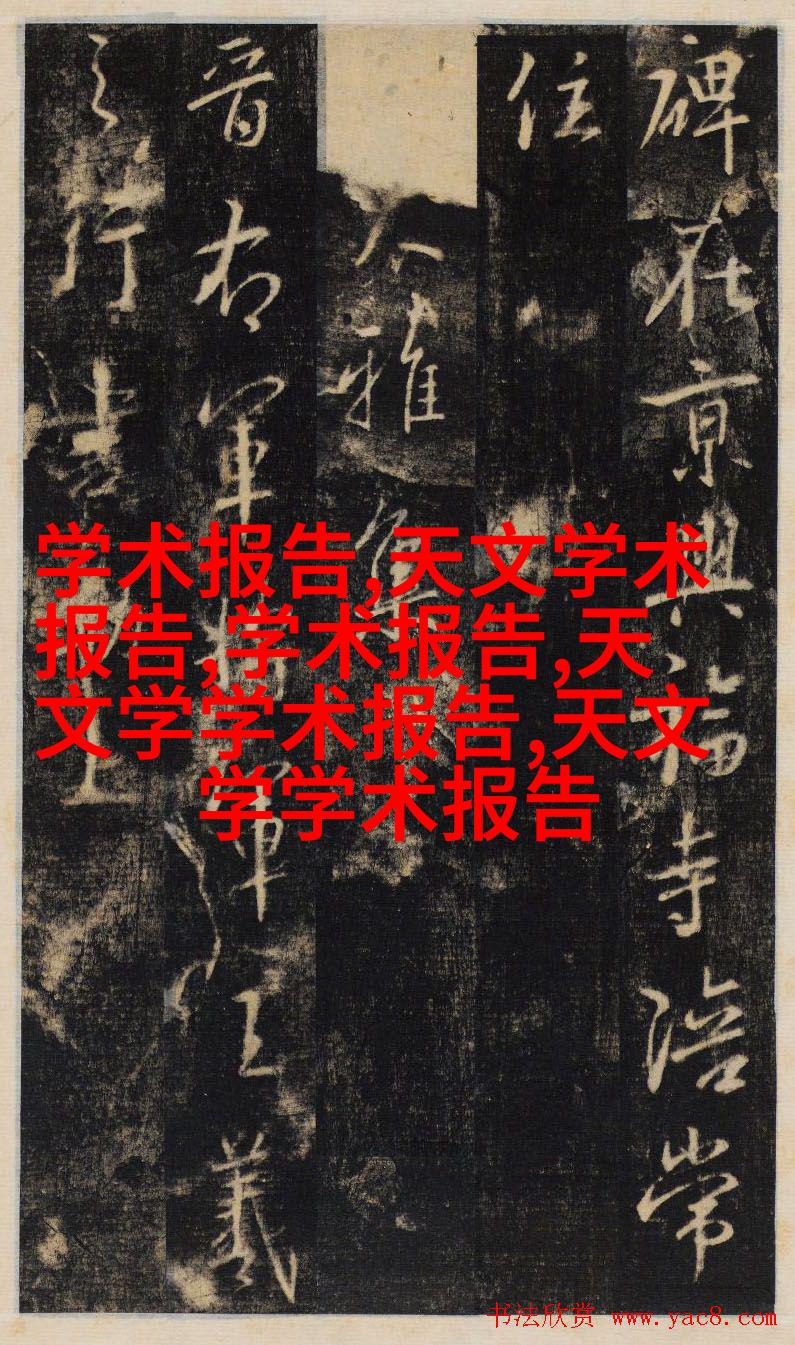 碑在京興福寺陪常
住
大雅集
晋右軍將軍王羲
之行書
学术报告,天文学术
报告,学术报告,天
文学学术报告,天文
学学术报告
书法欣赏 www.yac8.com